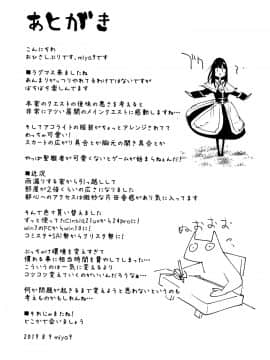 あとがき
こんにちわ
おひさしぶりです。miya9です
■ラグマス来ましたね
あんまりがっつりやれてるわけではないですが
ぼちぼち楽しんでます
本家のクエストの後味の悪さを考えると
非常にアツい展開のメインクエストに感動しますね…
そしてアコライトの服装がちょっとアレンジされてて
めっちゃ可愛い!
スカートの広がり具合とか胸元の開き具合とか
やっぱ聖職者が可愛くないとゲームが始まらねんだ!
■近況
雨漏りする家から引っ越しして
部屋が2倍くらいの広さになりました
都心へのアクセスは微妙な片田舎感があり気に入ってます
そんで色々買い替えました
ずっと使ってたCintiq21uxから24proに!
win7のPCからwin10に!
コミスタ+SAI勢からクリスタ勢に!
ぶっちゃけ環境を変えすぎて
慣れる事に相当時間を費やしてしまった…
こういうのは一気に変えるより
コツコツ変えていくのがいいんだろうなぁ…
何か問題が起きるまで変えようと思わないというのも
考えものかもしれんね…
■それじゃまたね!
どこかで会いましょう
2019 8 9 miya9
ぬおおおむ